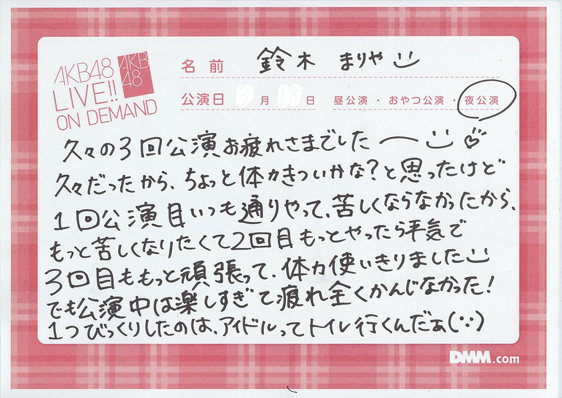 AKB48
LIVE!!
ON DEMAND
AKB
48
名前 鈴木 まりや
公演日 月 日 昼公演・おやつ公演・夜公演
久々の3回公演お疲れさまでしたー
久々だったから、ちょっと体力きついかな?と思ったけど
1回公演目いつも通りやって、苦しくならなかったから、
もっと苦しくなりたくて2回目もっとやったら平気で
3回目ももっと頑張って、体力使いきりました
でも公演中は楽しすぎて疲れ全くかんじなかった!
1つびっくりしたのは、アイドルってトイレ行くんだぁ(∵)
DMM.com